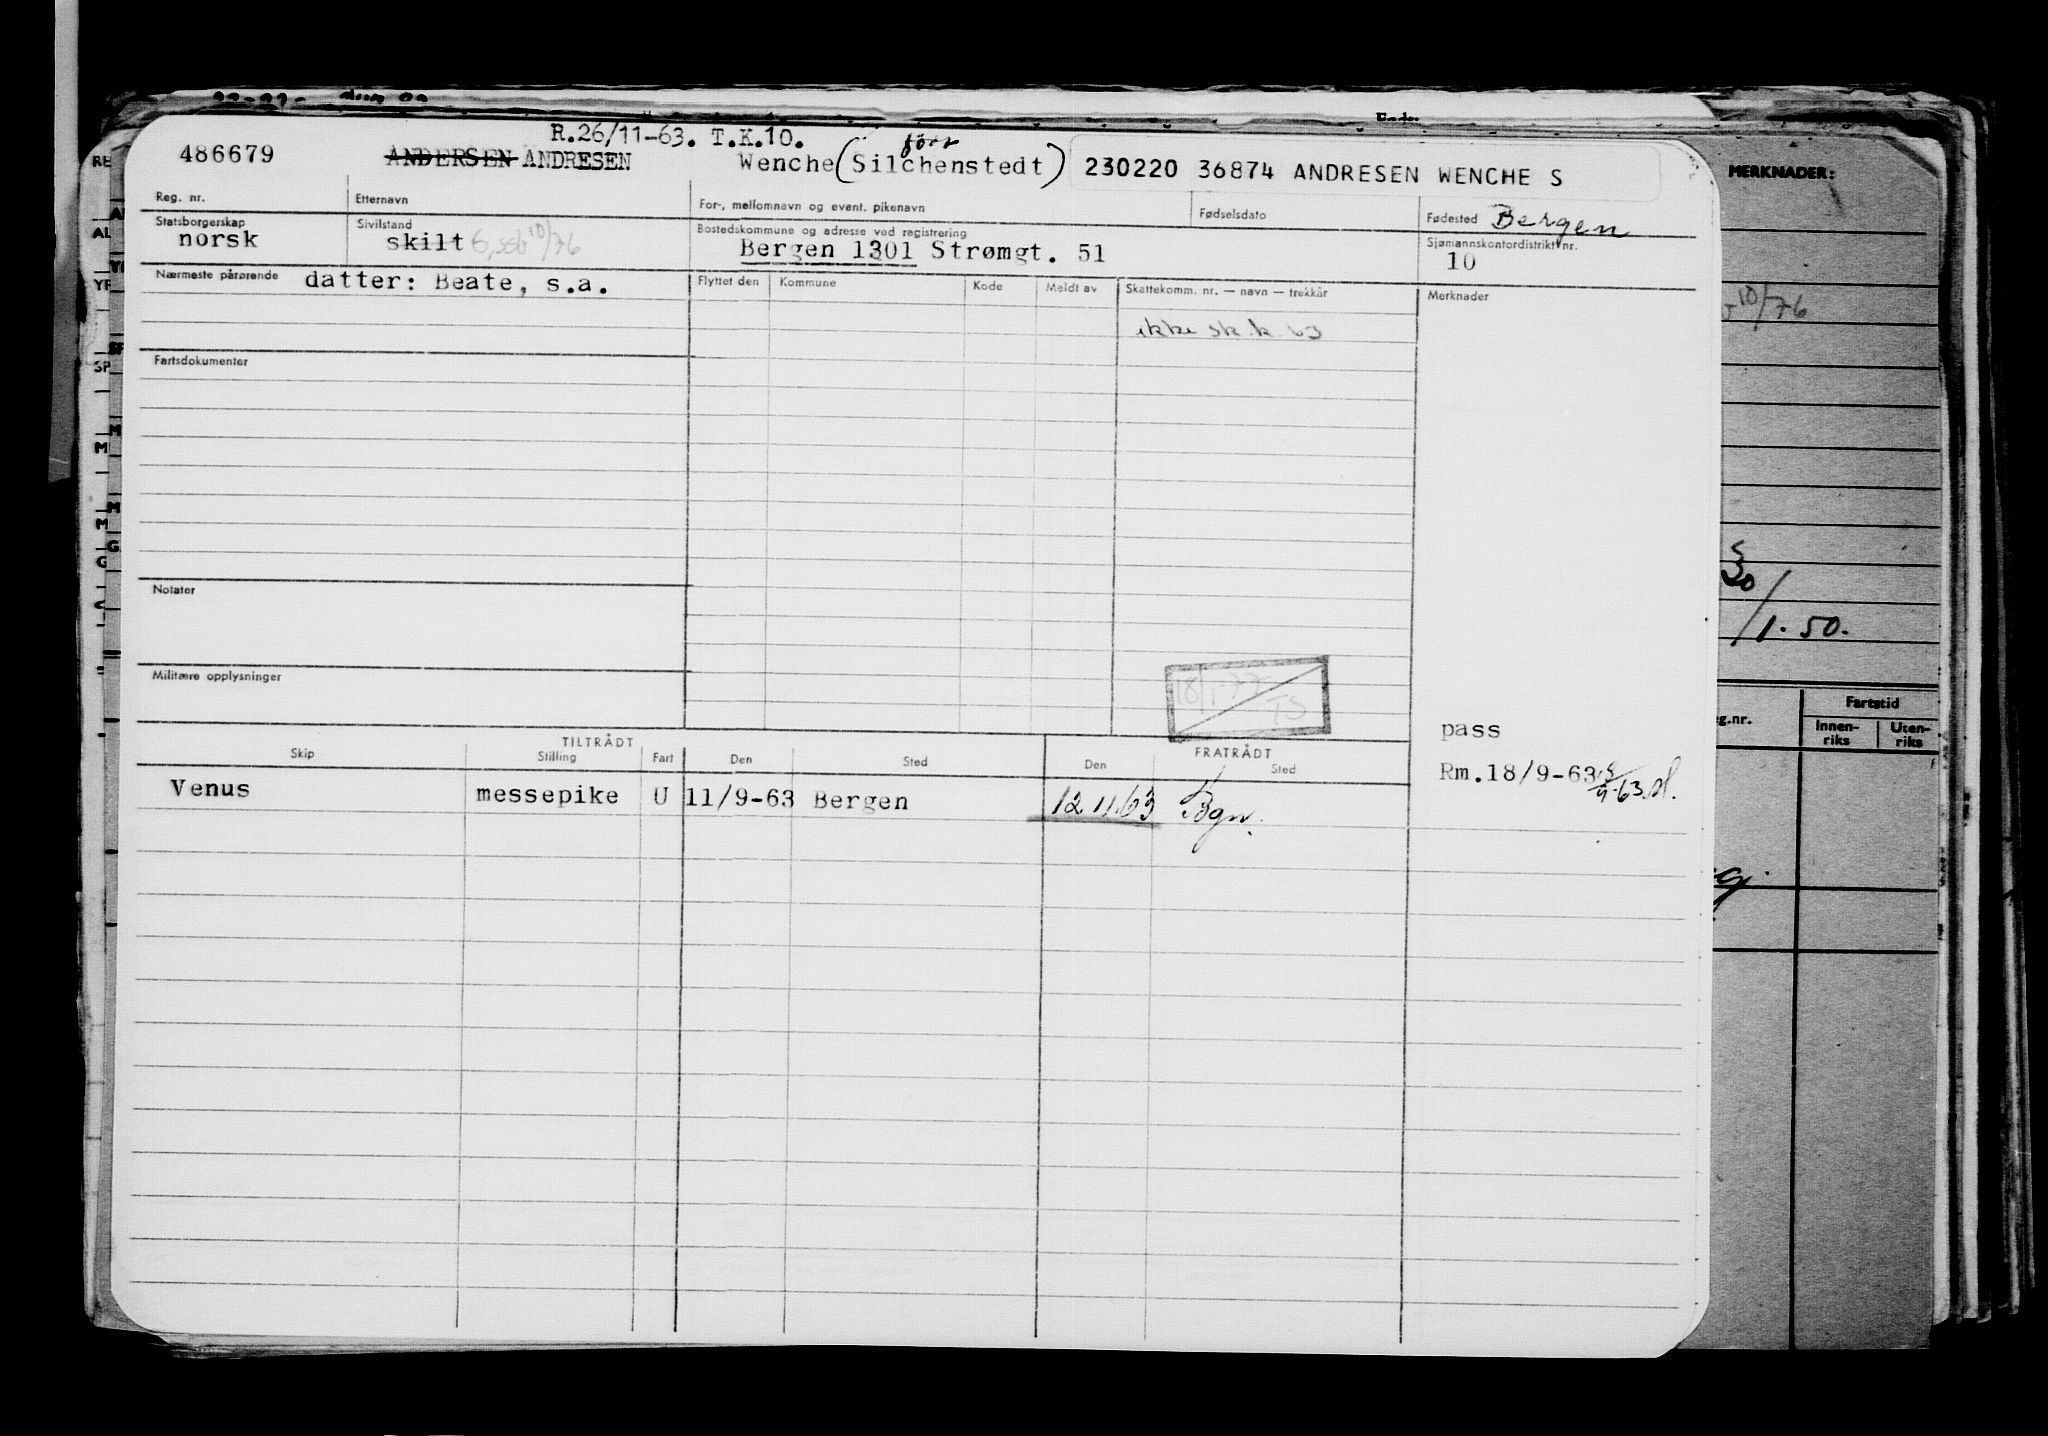 R.26/11-63. T.K.10.
486679 ANDERSEN ANDRESEN Wenche (Silchenstedt) 230220 36874 ANDRESEN WENCHE S
Reg. nr. Etternavn For-, mellomnavn og event. pikenavn Fødselsdato Fødested Bergen
Statsborgerskap Sivilstand Bostedskommune og adresse ved registrering Sjømannskontordistrikt nr.
norsk skilt 10/76 Bergen 1301 Strømgt. 51 10
Nærmeste pårørende datter: Beate, s.a. Flyttet den Kommune Kode Meldt av Skattekomm. nr. — navn — trekkår Merknader
ikke sk.k. 63
Fartsdokumenter
Notater
Militære opplysninger
18/1-77 TS
pass
Rm.18/9-63
TILTRÅDT FRATRÅDT
Skip Stilling Fart Den Sted Den Sted
Venus messepike U 11/9-63 Bergen 12.11.63 Bgn.
MERKNADER:
10/76
/1.50.
Fartstid
Innen-riks Uten-riks